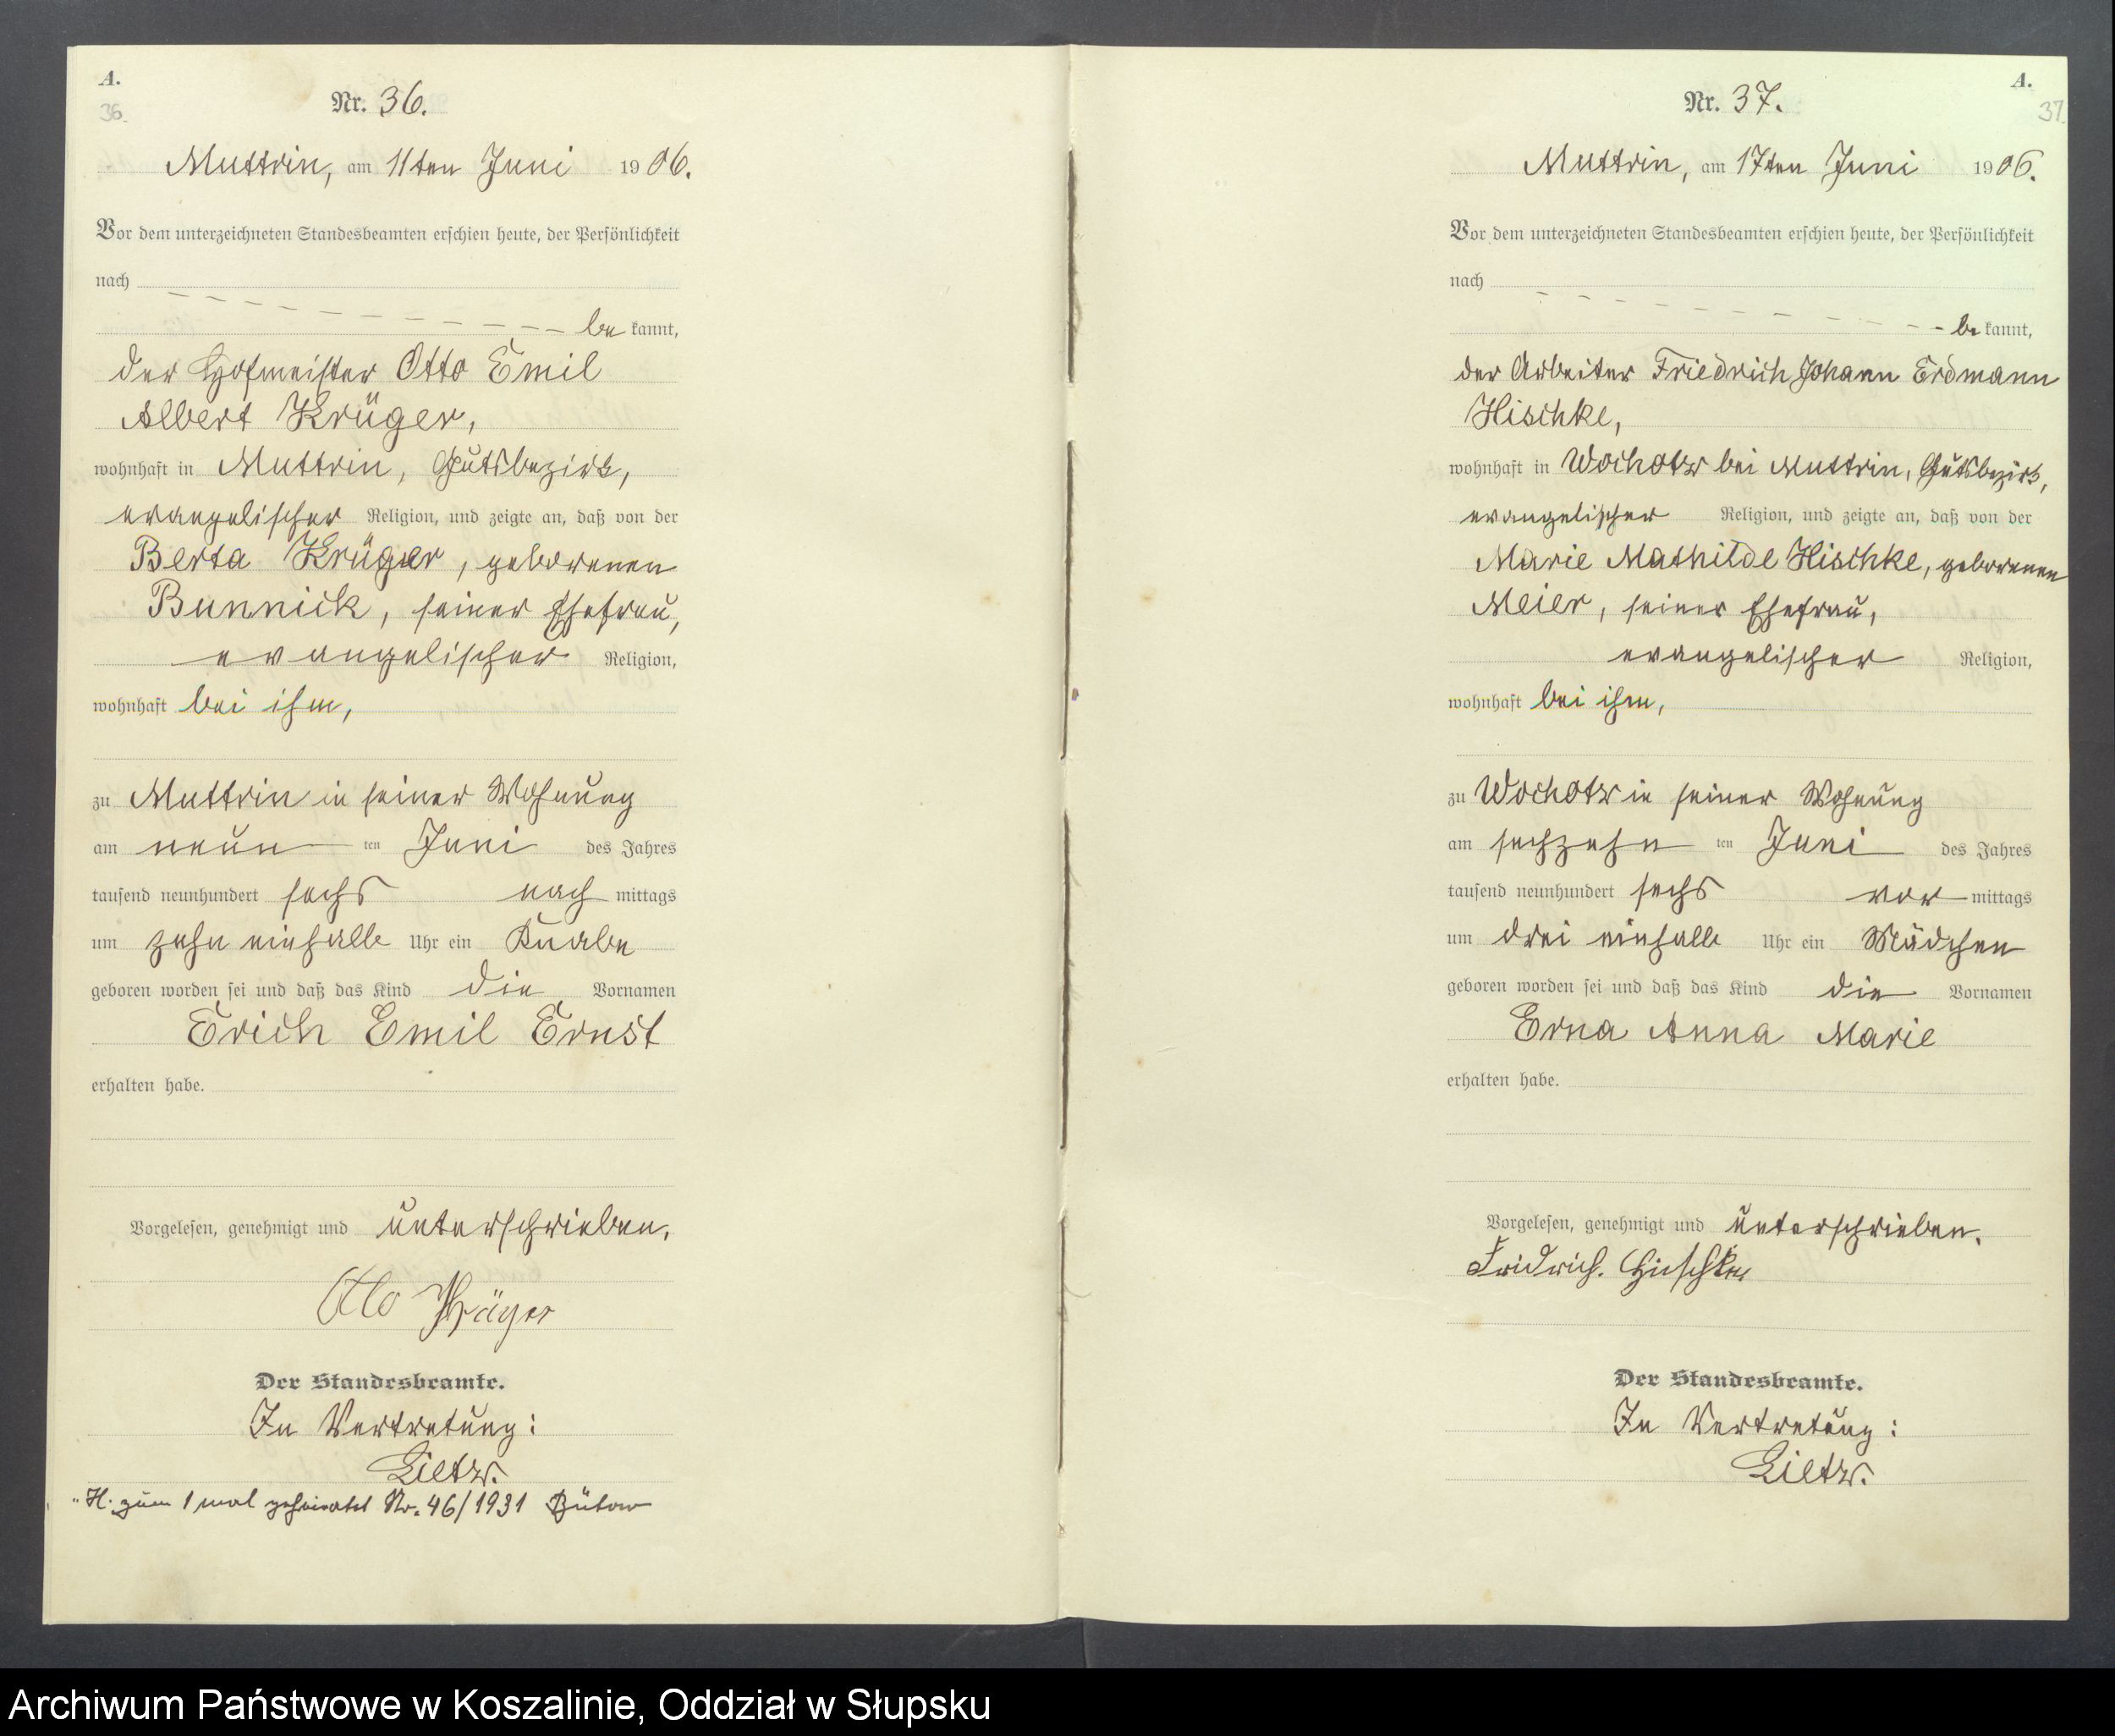 A.
36.
Nr. 36.
Muttrin, am 11ten Juni 1906.
Vor dem unterzeichneten Standesbeamten erschien heute, der Persönlichkeit
nach
be kannt,
der Hofmeister Otto Emil
Albert Krüger,
wohnhaft in Muttrin, Gutsbezirk,
evangelischer Religion, und zeigte an, daß von der
Berta Krüger, geborenen
Bunnick, seiner Ehefrau,
evangelischer Religion,
wohnhaft bei ihm,
zu Muttrin in seiner Wohnung
am neun ten Juni des Jahres
tausend neunhundert sechs nach mittags
um zehn einhalb Uhr ein Knabe
geboren worden sei und daß das Kind die Vornamen
Erich Emil Ernst
erhalten habe.
Vorgelesen, genehmigt und unterschrieben.
Otto Krüger
Der Standesbeamte.
In Vertretung:
Lietz.
"H. zum 1 mal geheiratet Nr. 46/1931 Bütow
A.
37.
Nr. 37.
Muttrin, am 17ten Juni 1906.
Vor dem unterzeichneten Standesbeamten erschien heute, der Persönlichkeit
nach
be kannt,
der Arbeiter Friedrich Johann Erdmann
Hischke,
wohnhaft in Wochotz bei Muttrin, Gutsbezirk,
evangelischer Religion, und zeigte an, daß von der
Marie Mathilde Hischke, geborenen
Meier, seiner Ehefrau,
evangelischer Religion,
wohnhaft bei ihm,
zu Wochotz in seiner Wohnung
am sechzehn ten Juni des Jahres
tausend neunhundert sechs vor mittags
um drei einhalb Uhr ein Mädchen
geboren worden sei und daß das Kind die Vornamen
Erna Anna Marie
erhalten habe.
Vorgelesen, genehmigt und unterschrieben.
Fridrich. Hischke
Der Standesbeamte.
In Vertretung:
Lietz.
Archiwum Państwowe w Koszalinie, Oddział w Słupsku